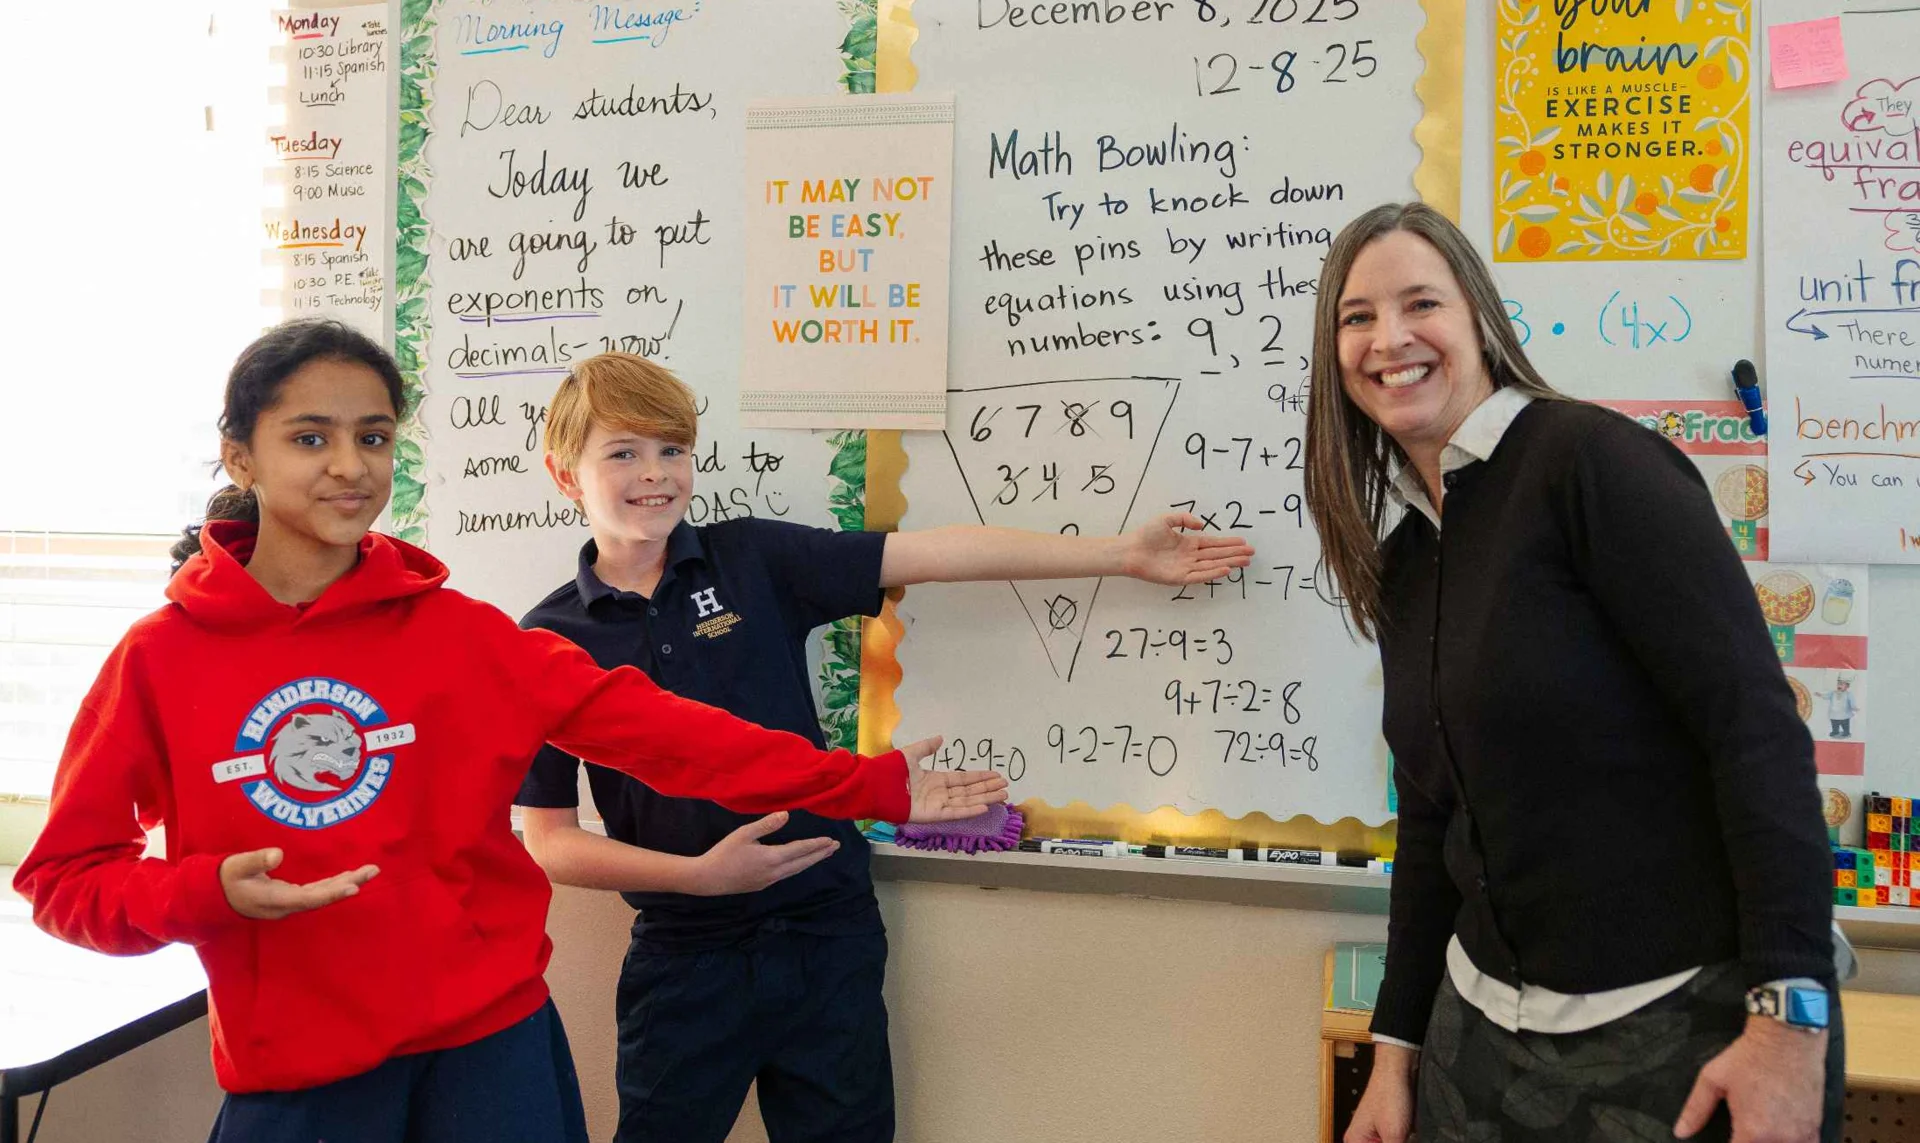 Monday
10:30 Library
11:15 Spanish
Lunch
Tuesday
8:15 Science
9:00 Music
Wednesday
8:15 Spanish
10:30 P.E.
11:15 Technology
Morning Message:
Dear students,
Today we
are going to put
exponents on
decimals - wow!
All
some
remember
IT MAY NOT
BE EASY,
BUT
IT WILL BE
WORTH IT.
December 8, 2025
12-8-25
Math Bowling:
Try to knock down
these pins by writing
equations using
numbers: 9, 2,
6 7 8 9
3 4 5
0
9-7+2
7x2-9
2+9-7=
27÷9=3
9+7÷2=8
+2-9=0
9-2-7=0
72÷9=8
your
brain
IS LIKE A MUSCLE-
EXERCISE
MAKES IT
STRONGER.
• (4x)
They
unit
There
You can
HENDERSON
EST.
1932
WOLVERINES
H
HENDERSON
INTERNATIONAL
SCHOOL
EXPO